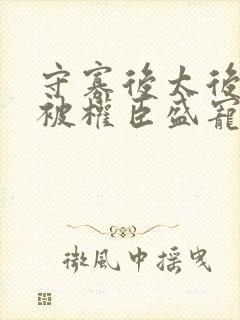 守寡後太後
被權臣盛寵
微風中摇曳